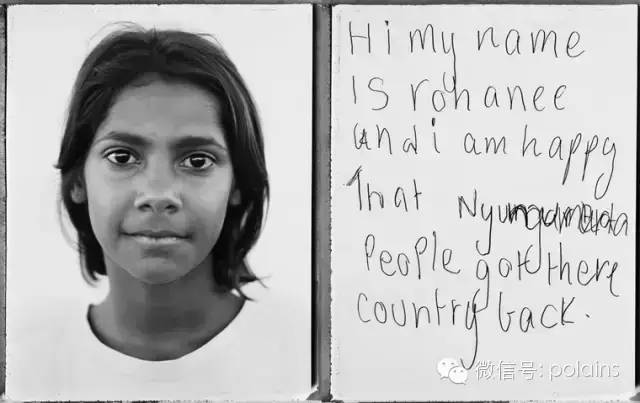 Hi my name
is rohanee
and i am happy
That
People got there
country back.
微信号: polains